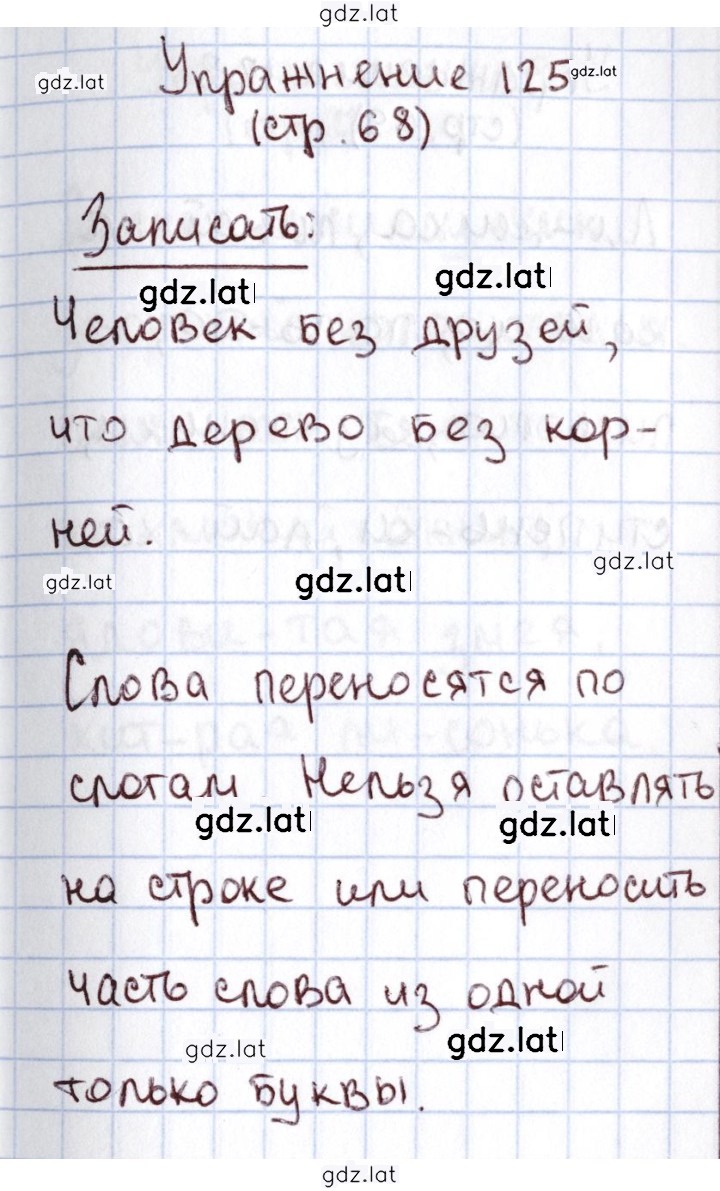 gdz.lat
gdz.lat Упражнение 125 gdz.lat
(стр. 68)
Записать:
gdz.lat gdz.lat
Человек без друзей,
что дерево без кор-
ней.
gdz.lat gdz.lat gdz.lat
Слова переносятся по
слогам Нельзя оставлять
gdz.lat gdz.lat
на строке или переносить
часть слова из одной
gdz.lat gdz.lat
только буквы.
gdz.lat